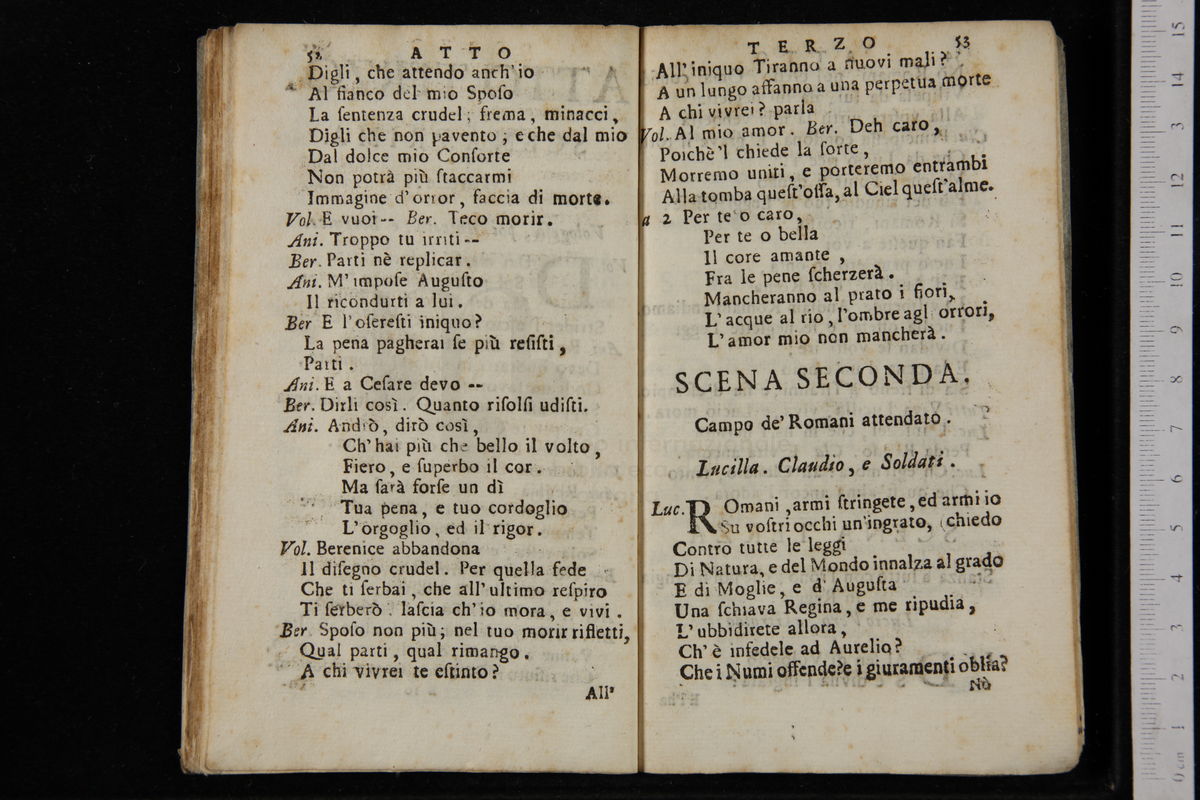 52 ATTO
Digli, che attendo anch'io
Al fianco del mio Spoſo
La ſentenza crudel; frema, minacci,
Digli che non pavento; e che dal mio
Dal dolce mio Conſorte
Non potrà più ſtaccarmi
Immagine d'orror, faccia di morte.
Vol. E vuoi-- Ber. Teco morir.
Ani. Troppo tu irriti--
Ber. Parti nè replicar.
Ani. M' impoſe Auguſto
Il ricondurti a lui.
Ber E l'oſereſti iniquo?
La pena pagherai ſe più reſiſti,
Parti.
Ani. E a Ceſare devo --
Ber. Dirli così. Quanto riſolſi udiſti.
Ani. Andrò, dirò così,
Ch'hai più che bello il volto,
Fiero, e ſuperbo il cor.
Ma ſarà forſe un dì
Tua pena, e tuo cordoglio
L'orgoglio, ed il rigor.
Vol. Berenice abbandona
Il diſegno crudel. Per quella fede
Che ti ſerbai, che all'ultimo reſpiro
Ti ſerberò: laſcia ch'io mora, e vivi.
Ber. Spoſo non più; nel tuo morir rifletti,
Qual parti, qual rimango.
A chi vivrei te eſtinto?
All'
TERZO 53
All'iniquo Tiranno a nuovi mali?
A un lungo affanno a una perpetua morte
A chi vivrei? parla
Vol. Al mio amor. Ber. Deh caro,
Poichè'l chiede la ſorte,
Morremo uniti, e porteremo entrambi
Alla tomba queſt'oſſa, al Ciel queſt'alme.
a 2 Per te o caro,
Per te o bella
Il core amante,
Fra le pene ſcherzerà.
Mancheranno al prato i fiori,
L'acque al rio, l'ombre agl orrori,
L'amor mio non mancherà.
SCENA SECONDA.
Campo de' Romani attendato.
Lucilla. Claudio, e Soldati.
Luc. ROmani, armi ſtringete, ed armi io
Su voſtri occhi un'ingrato, (chiedo
Contro tutte le leggi
Di Natura, e del Mondo innalza al grado
E di Moglie, e d' Auguſta
Una ſchiava Regina, e me ripudia,
L'ubbidirete allora,
Ch'è infedele ad Aurelio?
Che i Numi offende? e i giuramenti oblia?
Nò
15
14
13
12
11
10
9
8
7
6
5
4
3
2
1
0 cm